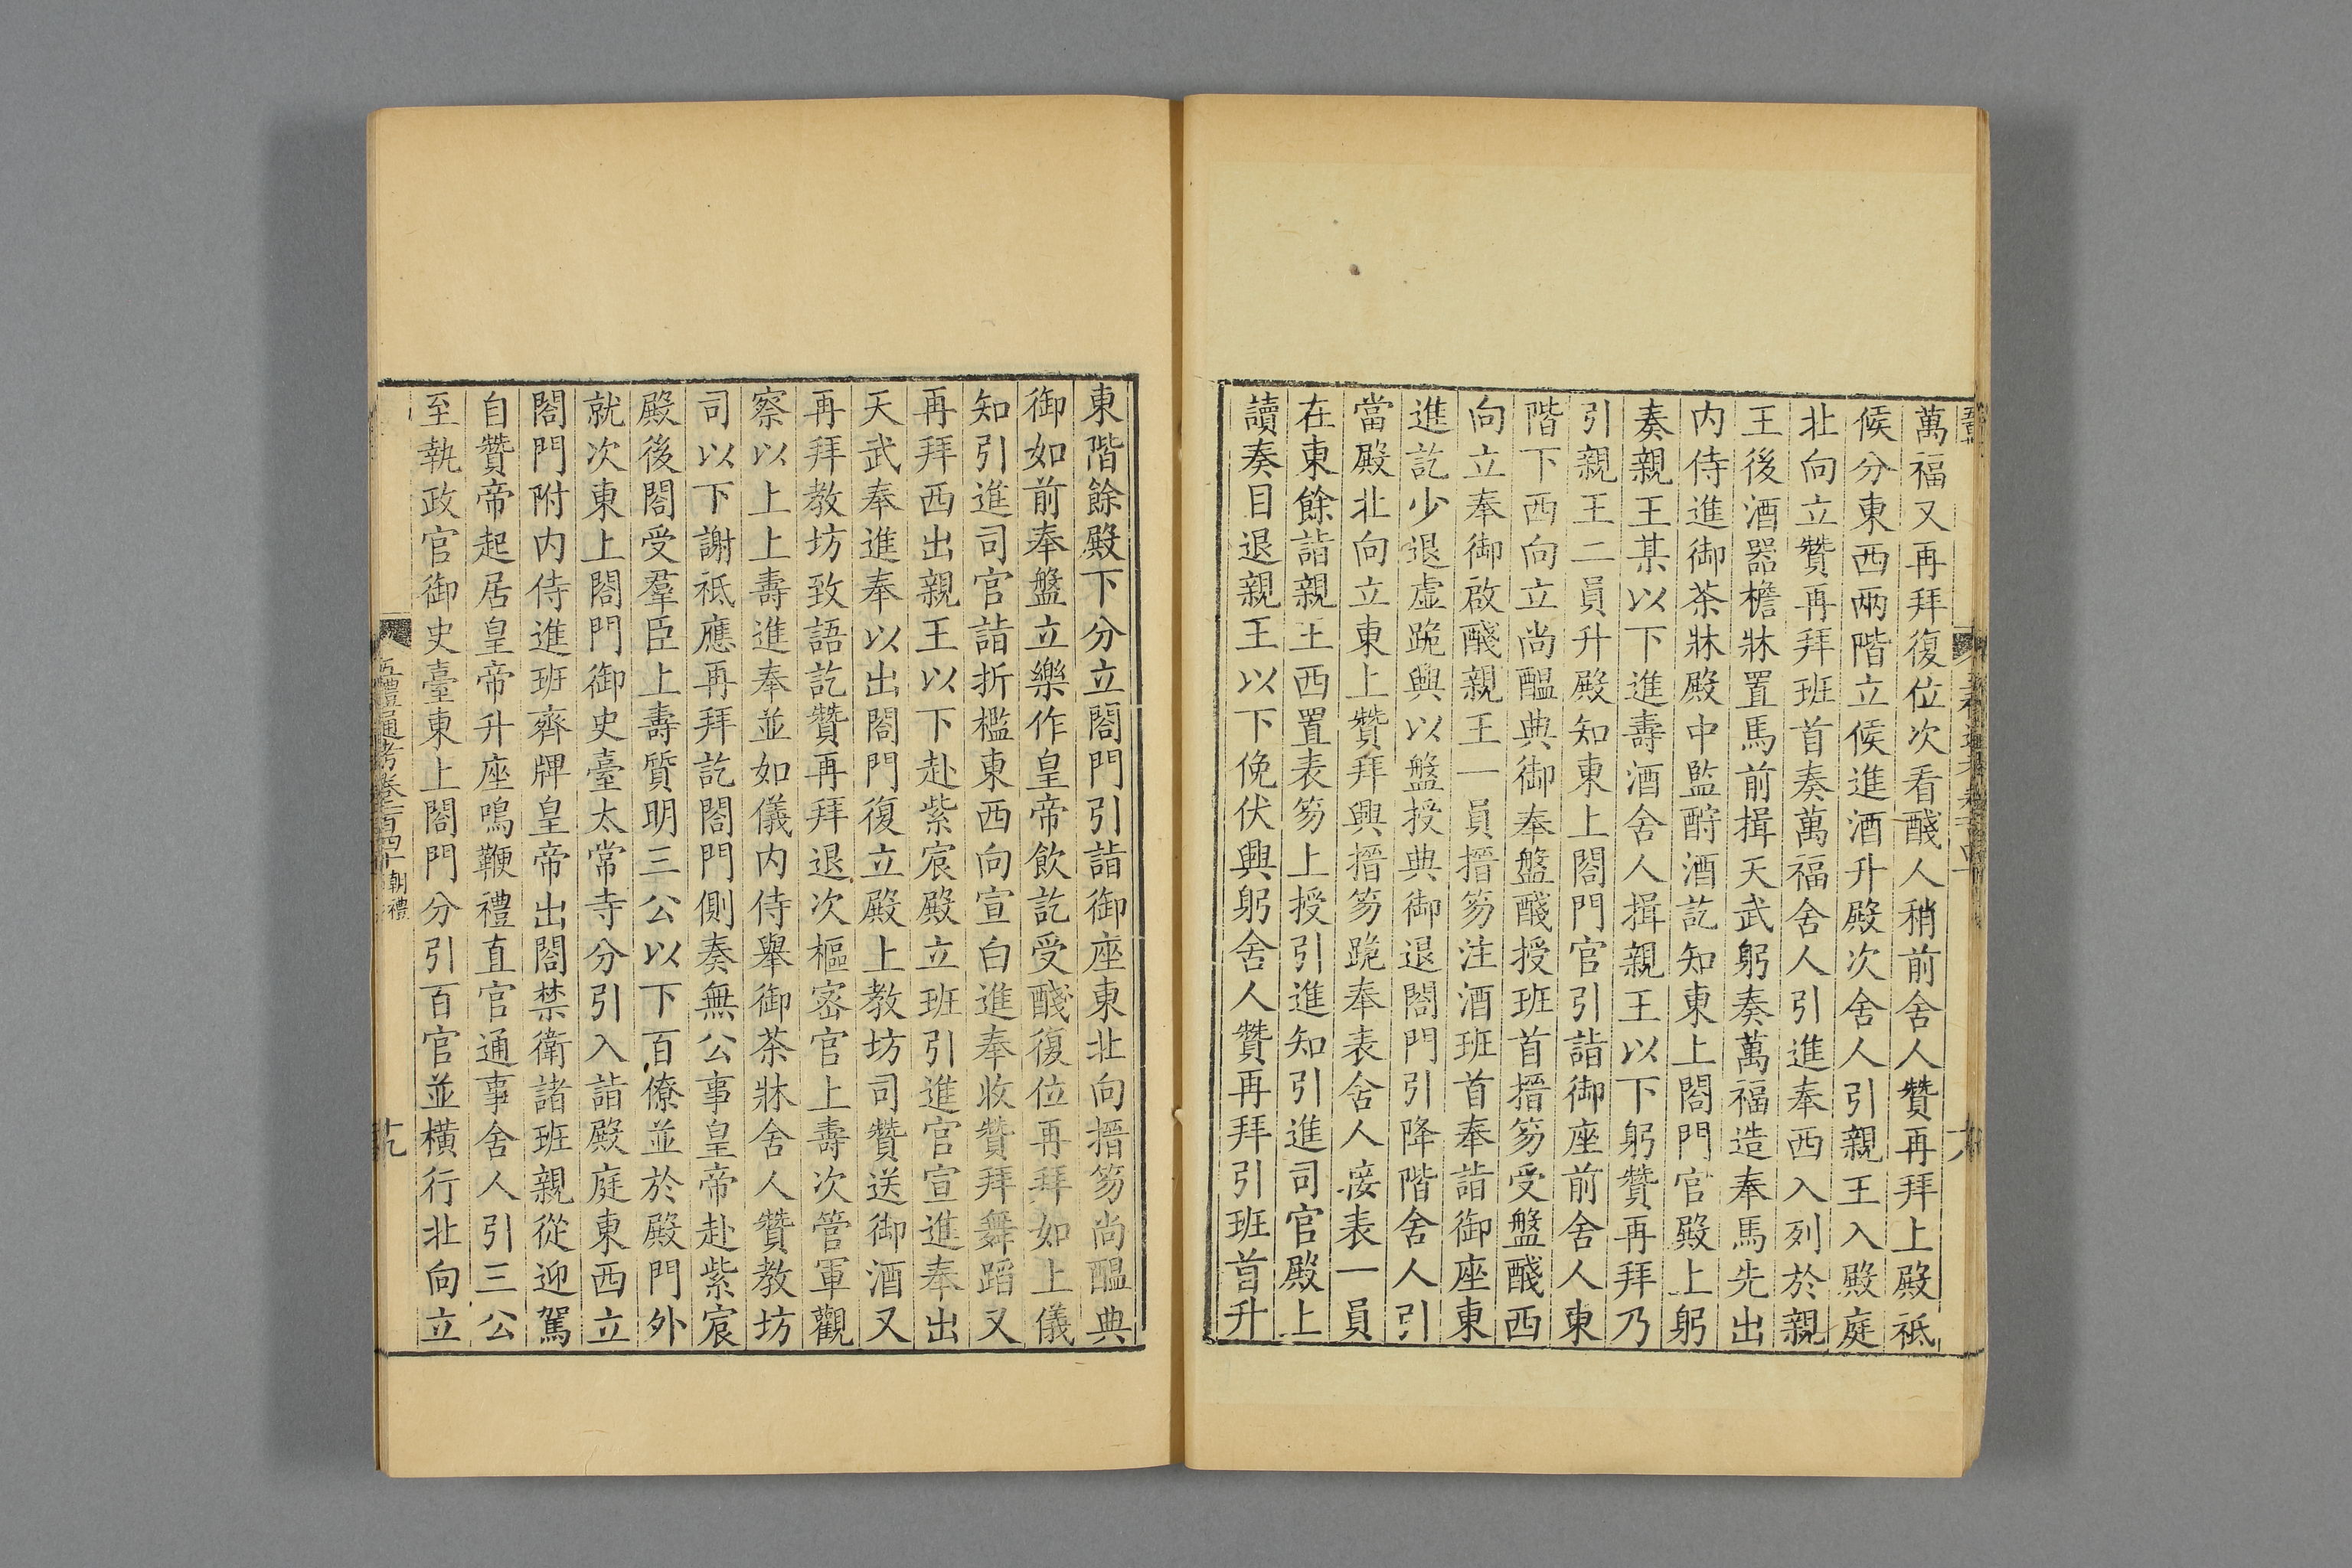 萬福又再拜復位次看醆人稍前舍人贊再拜上殿祗
候分東西兩階立候進酒升殿次舍人引親王入殿庭
北向立贊再拜班首奏萬福舍人引進奉西入列於親
王後酒器檐牀置馬前揖天武躬奏萬福造奉馬先出
内侍進御茶牀殿中監酹酒訖知東上閤門官殿上躬
奏親王某以下進壽酒舍人揖親王以下躬贊再拜乃
引親王二員升殿知東上閤門官引詣御座前舍人東
階下西向立尚醖典御奉盤醆授班首搢笏受盤醆西
向立奉御啟醆親王一員搢笏注酒班首奉詣御座東
進訖少退虛跪興以盤授典御退閤門引降階舍人引
當殿北向立東上贊拜興搢笏跪奉表舍人接表一員
在東餘詣親王西置表笏上授引進知引進司官殿上
讀奏目退親王以下俛伏興躬舍人贊再拜引班首升
東階餘殿下分立閤門引詣御座東北向搢笏尚醖典
御如前奉盤立樂作皇帝飲訖受醆復位再拜如上儀
知引進司官詣折檻東西向宣白進奉收贊拜舞蹈又
再拜西出親王以下赴紫宸殿立班引進官宣進奉出
天武奉進奉以出閤門復立殿上教坊司贊送御酒又
再拜教坊致語訖贊再拜退次樞密官上壽次管軍觀
察以上上壽進奉並如儀内侍舉御茶牀舍人贊教坊
司以下謝祗應再拜訖閤門側奏無公事皇帝赴紫宸
殿後閤受羣臣上壽質明三公以下百僚並於殿門外
就次東上閤門御史臺太常寺分引入詣殿庭東西立
閤門附内侍進班齊牌皇帝出閤禁衛諸班親從迎駕
自贊帝起居皇帝升座鳴鞭禮直官通事舍人引三公
至執政官御史臺東上閤門分引百官並橫行北向立
五禮通考卷一百四十 朝禮